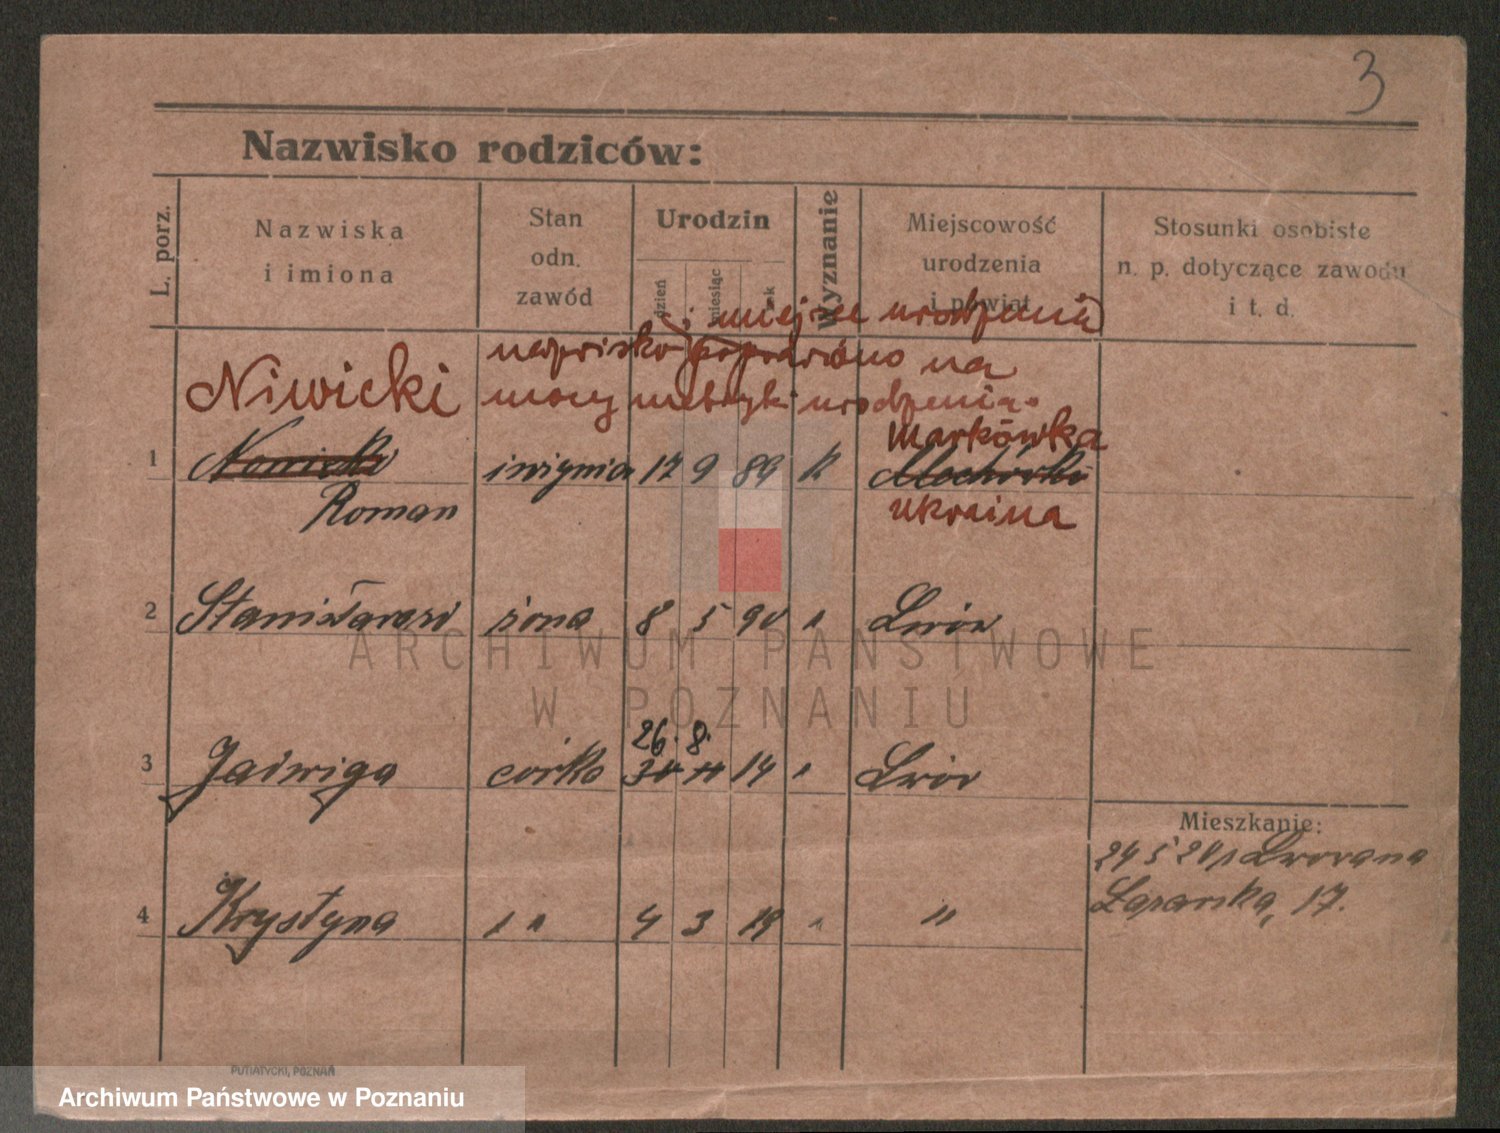 3
Nazwisko rodziców:
L. porz.
Nazwiska
i imiona
Stan
odn.
zawód
Urodzin
dzień
miesiąc
rok
Wyznanie
Miejscowość
urodzenia
i powiat
Stosunki osobiste
n. p. dotyczące zawodu
i t. d.
i miejsce urodzenia
nazwisko poprawiono na
Niwicki mocy metryki urodzenia.
Markówka
1 Nowicki inżynier 17 9 89 k
Roman Ukraina
2 Stanisława żona 8 5 90 " Lwów
ARCHIWUM PAŃSTWOWE
W POZNANIU
26. 8.
3 Jadwiga córka 30 11 14 " Lwów
Mieszkanie:
24 5 20 Lwowa na
4 Krystyna " " 4 3 19 " "
17.
PUTIATYCKI, POZNAŃ
Archiwum Państwowe w Poznaniu